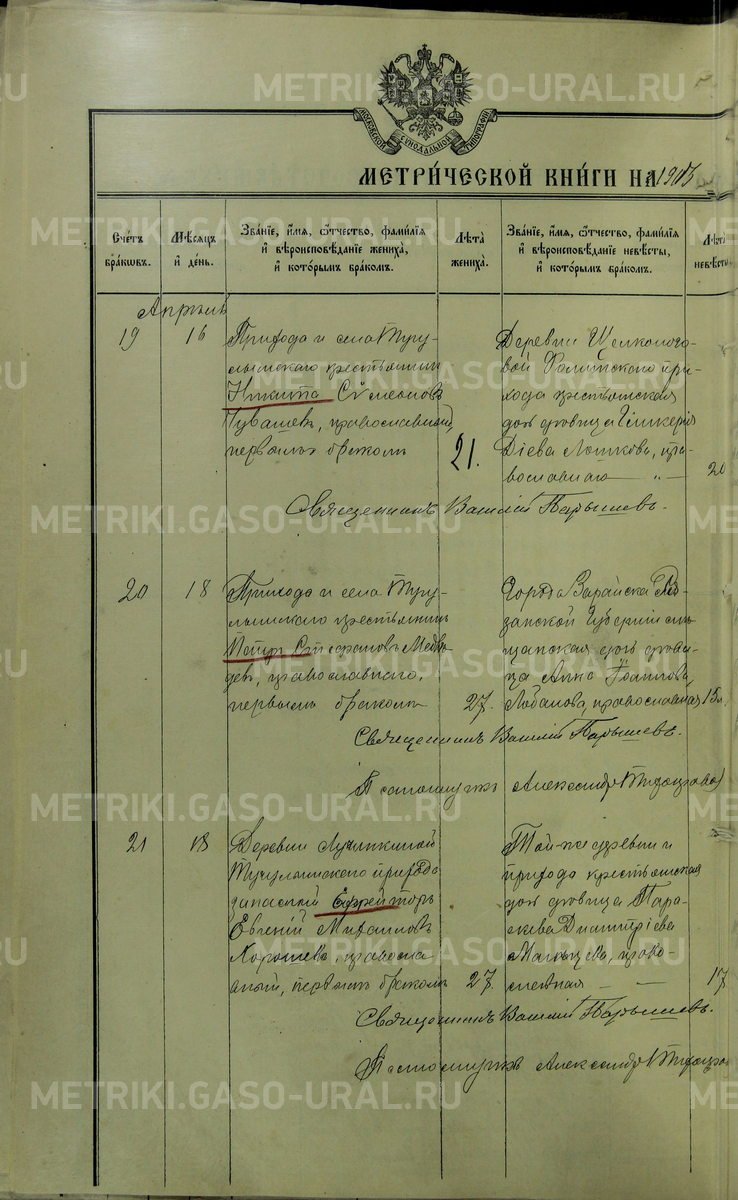 METRIKI.GASO-URAL.RU
МОСКОВСКОЙ СѴНОДАЛЬНОЙ ТИПОГРАФІИ
МЕТРИ́ЧЕСКОЙ КНИ́ГИ НА 1913
Сче́тъ бра́кѡвъ.
Мѣ́сѧцъ и҆ де́нь.
Зва́нїе, и҆́мѧ, ѻ҆́тчество, фами́лїѧ и҆ вѣроисповѣ́данїе жениха̀, и҆ кото́рымъ бра́комъ.
Лѣ́та жениха̀.
Зва́нїе, и҆́мѧ, ѻ҆́тчество, фами́лїѧ и҆ вѣроисповѣ́данїе невѣ́сты, и҆ кото́рымъ бра́комъ.
Лѣ́та невѣ́сты
Апрѣль
19
16
Прихода и села Тугу-
лымскаго крестьянинъ
Никита Сѵмеоновъ
Чувашевъ, православный,
первымъ бракомъ
21.
Деревни
прихода крестьянская
дочь дѣвица Гликерія
Діева православная
20
Священникъ Василій Парышевъ.
20
18
Прихода и села Тугу-
лымскаго крестьянинъ
Петръ Стефановъ Медвѣ-
девъ, православнаго,
первымъ бракомъ
27.
Города Зарайска Ря-
занской Губерніи мѣ-
щанская дочь дѣви-
ца Анна Іоаннова
Лобанова, православная
Священникъ Василій Парышевъ.
Псаломщикъ Александръ
21
18
Деревни Лучинкиной
Тугулымскаго прихода
запасный Ефрейторъ
Евгеній Михаиловъ
Хорошевъ, правосла
вный, первымъ бракомъ
27.
Той-же деревни и
прихода крестьянская
дочь дѣвица Пара-
скева Димитріева
право-
славная
17
Священникъ Василій Парышевъ.
Псаломщикъ Александръ